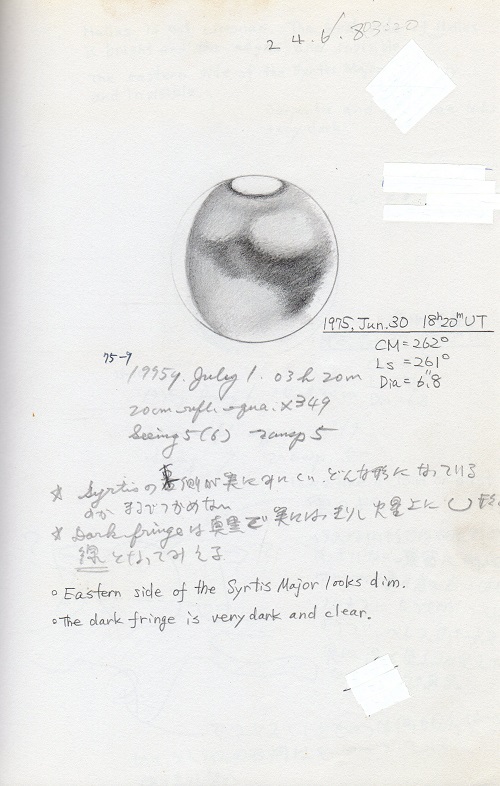 2 4. 6.
1975, Jun. 30 18ʰ20ᵐ UT
CM=262°
Ls=261°
Dia=6.″8
75-9
1975y. July 1. 03h 20m
20cm refl. equa. ×349
Seeing 5(6) Transp 5
* Syrtisの 側が実にみにくい.どんな形になっている
のか まるでつかめない
* Dark fringeは真黒で実にはっきりし 火星上に
線となってみえる
○Eastern side of the Syrtis Major looks dim.
○The dark fringe is very dark and clear.